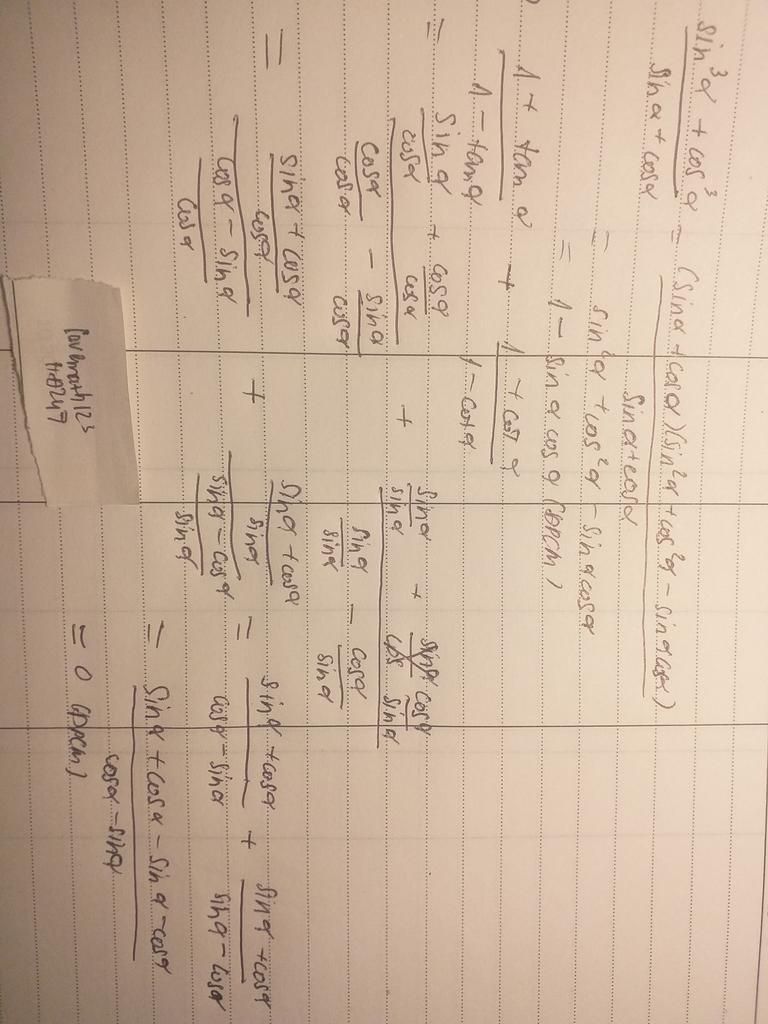 sin³α + cos³α / sinα + cosα = (sinα + cosα)(sin²α + cos²α - sinα cosα) / sinα + cosα
= sin²α + cos²α - sinα cosα
= 1 - sinα cosα (ĐPCM)
1 + tanα / 1 - tanα + 1 + cotα / 1 - cotα
= sinα/cosα + cosα/cosα / cosα/cosα - sinα/cosα + sinα/sinα + cosα/sinα / sinα/sinα - cosα/sinα
= sinα + cosα/cosα / cosα - sinα/cosα + sinα + cosα/sinα / sinα - cosα/sinα = sinα + cosα / cosα - sinα + sinα + cosα / sinα - cosα
= sinα + cosα - sinα - cosα / cosα - sinα
= 0 (ĐPCM)